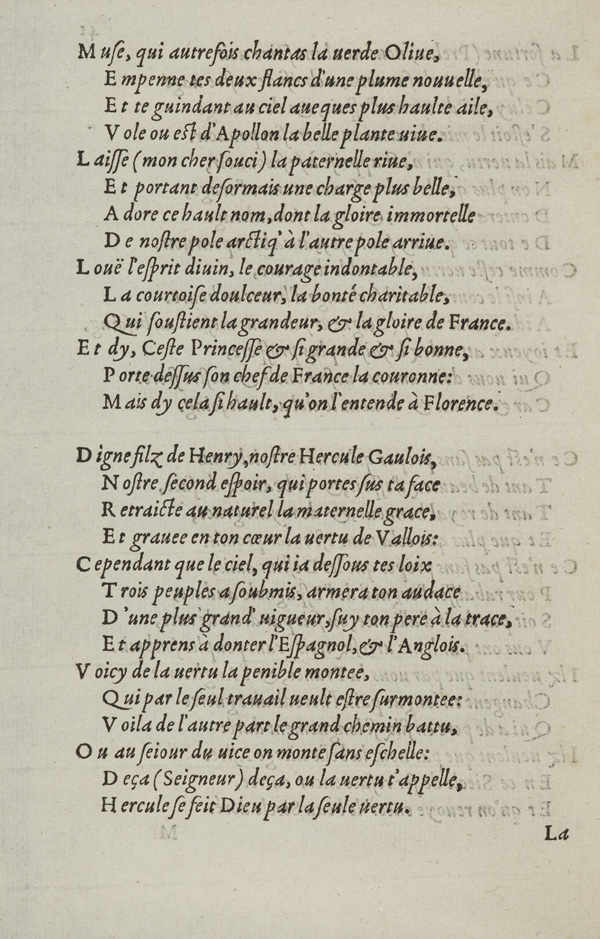 Muſe, qui autrefois chantas la uerde Oliue,
Empenne tes deux flancs d'une plume nouuelle,
Et te guindant au ciel aueques plus haulte aile,
Vole ou eſt d'Apollon la belle plante uiue.
Laiſſe (mon cher ſouci) la paternelle riue,
Et portant deſormais une charge plus belle,
Adore ce hault nom, dont la gloire immortelle
De noſtre pole arctiq' à l'autre pole arriue.
Louë l'eſprit diuin, le courage indontable,
La courtoiſe doulceur, la bonté charitable,
Qui ſouſtient la grandeur, & la gloire de France.
Et dy, Ceſte Princeſſe & ſi grande & ſi bonne,
Porte deſſus ſon chef de France la couronne:
Mais dy cela ſi hault, qu'on l'entende à Florence.
Digne filz de Henry, noſtre Hercule Gaulois,
Noſtre ſecond eſpoir, qui portes ſus ta face
Retraicte au naturel la maternelle grace,
Et grauee en ton cœur la uertu de Vallois:
Cependant que le ciel, qui ia deſſous tes loix
Trois peuples a ſoubmis, armera ton audace
D'une plus grand' uigueur, ſuy ton pere à la trace,
Et apprens à donter l'Eſpagnol, & l'Anglois.
Voicy de la uertu la penible montee,
Qui par le ſeul trauail ueult eſtre ſurmontee:
Voila de l'autre part le grand chemin battu,
Ou au ſeiour du uice on monte ſans eſchelle:
Deça (Seigneur) deça, ou la uertu t'appelle,
Hercule ſe feit Dieu par la ſeule uertu.
La